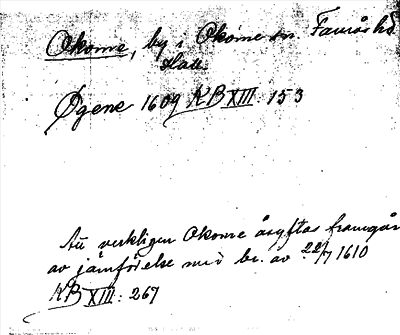 Okome, by i Okome sn. Faurås hd
Hall.
Øgene 1609 KB XIII: 153
Att verkligen Okome åsyftas framgår
av jämförelse med br. av 22/7 1610
KB XIII: 267